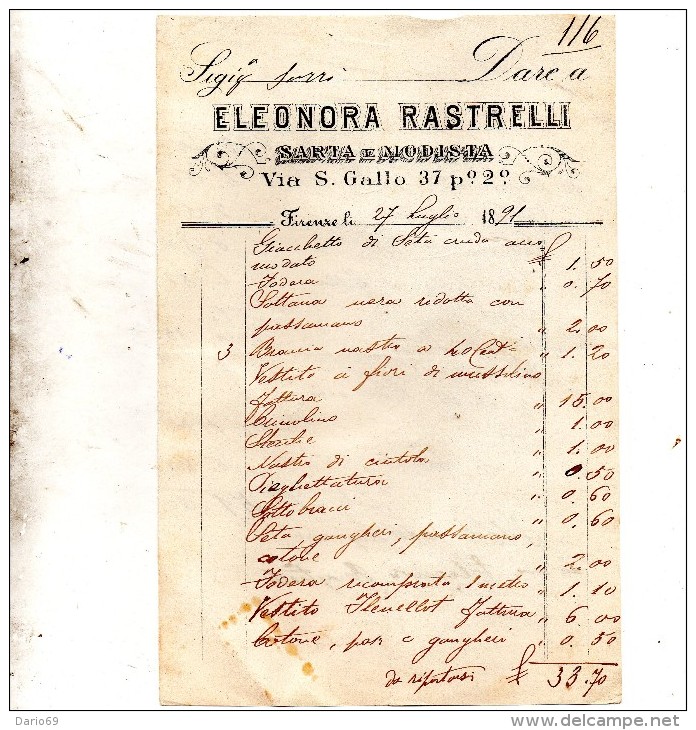 116
Sig.ª Dare a
ELEONORA RASTRELLI
SARTA E MODISTA
Via S. Gallo 37 pº 2º
Firenze li 27 Luglio 1891
Giacchetto di Seta cruda acco
modato £ 1.50
Fodera 0.70
Sottana nera ridotta con
passamano " 2.00
3 Braccia nastro a 40 Cent. " 1.20
Vestito a fiori di mussolina
fattura " 15.00
Crinolino " 1.00
Stecche " 1.00
Nastro di cintola " 0.50
Pieghettatura " 0.60
Sottobracci " 0.60
Seta, gangheri, passamano,
cotone " 2.00
Fodera ricomprata 1 metro " 1.10
Vestito fattura " 6.00
Cotone, e gangheri " 0.50
da riportarsi £ 33.70
Dario69
www.delcampe.net